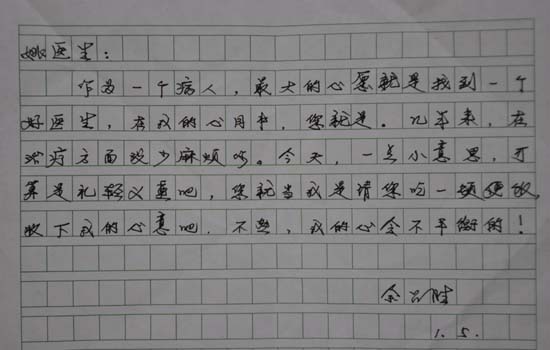 姚医生：
作为一个病人，最大的心愿就是找到一个
好医生，在我的心目中，您就是。几年来，在
治疗方面没少麻烦您。今天，一点小意思，可
算是礼轻义重吧，您就当我是请您吃一顿便饭，
收下我的心意吧，不然，我的心会不平衡的！
余
1.5.